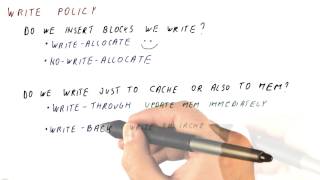 WRITE POLICY
DO WE INSERT BLOCKS WE WRITE?
• WRITE-ALLOCATE
• NO-WRITE-ALLOCATE
DO WE WRITE JUST TO CACHE OR ALSO TO MEM?
• WRITE-THROUGH UPDATE MEM IMMEDIATELY
• WRITE-BACK WRITE TO CACHE